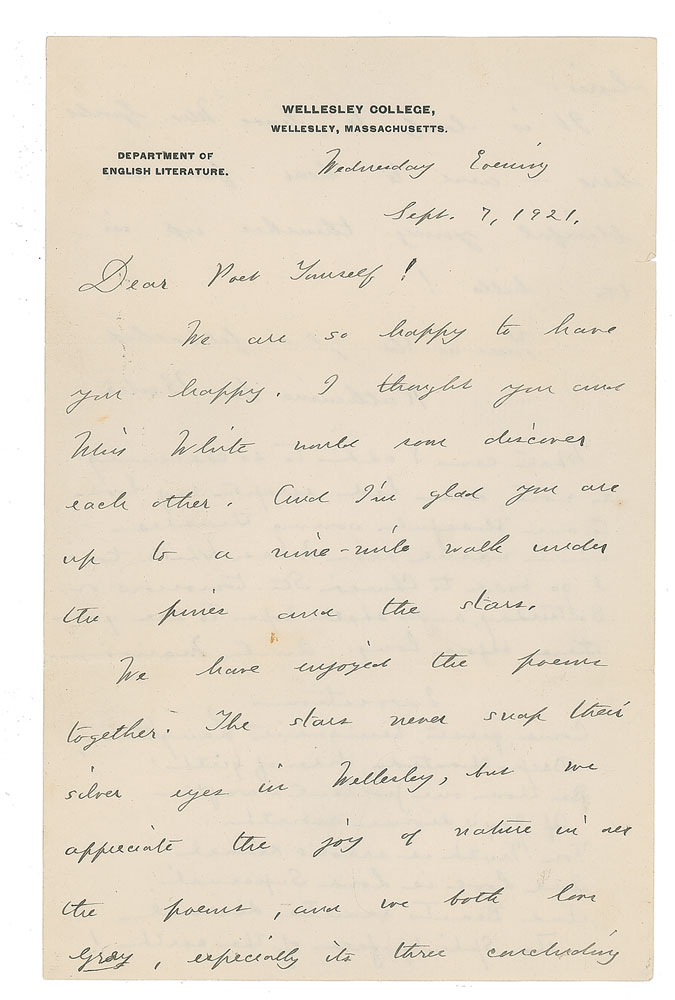 WELLESLEY COLLEGE,
WELLESLEY, MASSACHUSETTS.
DEPARTMENT OF
ENGLISH LITERATURE.
Wednesday Evening
Sept. 7, 1921.
Dear Poet Yourself!
We are so happy to have
you happy. I thought you and
Miss White would soon discover
each other. And I'm glad you are
up to a nine-mile walk under
the pines and the stars.
We have enjoyed the poems
together. The stars never snap their
silver eyes in Wellesley, but we
appreciate the joy of nature in all
the poems, and we both love
Gray, especially its three concluding